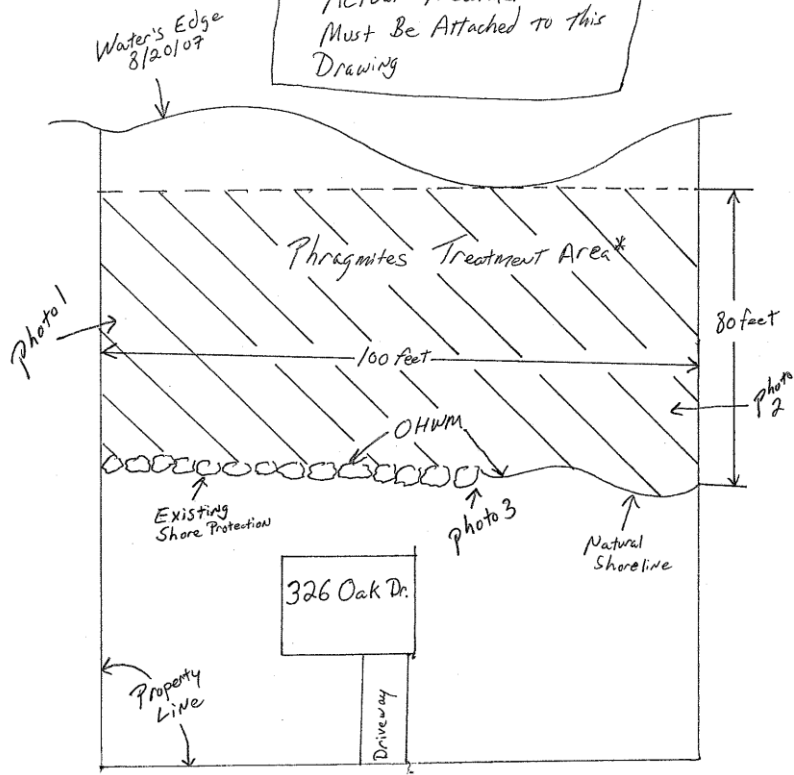 Must Be Attached To this
Drawing
Water's Edge
8/20/07
Phragmites Treatment Area*
Photo 1
100 feet
80 feet
Photo
2
OHWM
Existing
Shore Protection
Photo 3
Natural
Shoreline
326 Oak Dr.
Property
Line
Driveway